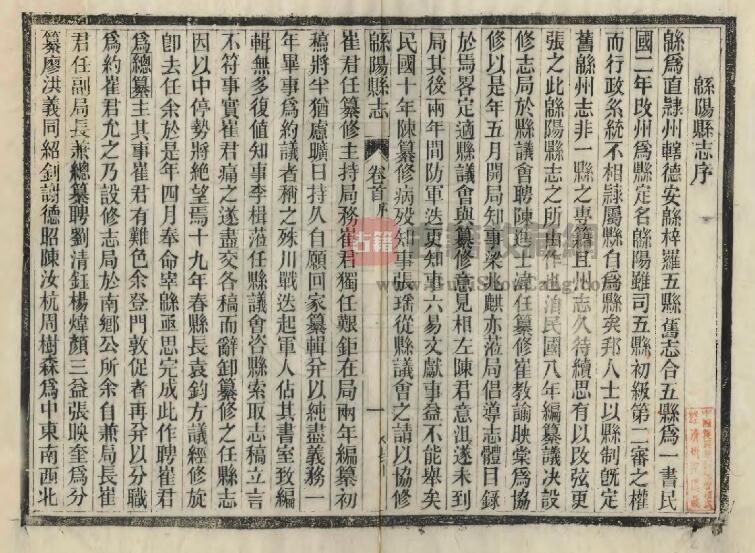 緜陽縣志序
緜爲直隸州轄德安緜梓羅五縣舊志合五縣爲一書民
國二年改州爲縣定名緜陽雖司五縣初級第二審之權
而行政系統不相隸屬緜自爲縣矣邦人士以縣制旣定
舊緜州志非一縣之專籍且州志久待續思有以改弦更
張之此緜陽縣志之所由作也洎民國八年編纂議決設
修志局於縣議會聘陳進士湋任纂修崔教諭映棠爲協
修以是年五月開局知事梁麟亦蒞局倡導志體目錄
於焉畧定適縣議會與纂修意見相左陳君意沮遂未到
局其後兩年間防軍迭更知事六易文獻事益不能舉矣
民國十年陳纂修病歿知事張瑤從縣議會之請以協修
緜陽縣志
卷首
序
一
崔君任纂修主持局務崔君獨任艱鉅在局兩年編纂初
稿將半猶慮曠日持久自願回家纂輯并以純盡義務一
年畢事爲約議者稱之殊川戰迭起軍人佔其書室致編
輯無多復値知事李楫蒞任縣議會咨縣索取志稿立言
不符事實崔君痛之遂盡交各稿而辭卸纂修之任縣志
因以中停勢將絕望焉十九年春縣長袁鈞方議經修旋
卽去任余於是年四月奉命宰緜亟思完成此作聘崔君
爲總纂主其事崔君有難色余登門敦促者再幷以分職
爲約崔君允之乃設修志局於南鄉公所余自兼局長崔
君任副局長兼總纂聘劉清鈺楊煒顏三益張映奎爲分
纂廖洪義同紹釗謝德昭陳汝杭周樹森爲中東南西北
古籍
www.GuJiShouCang.com